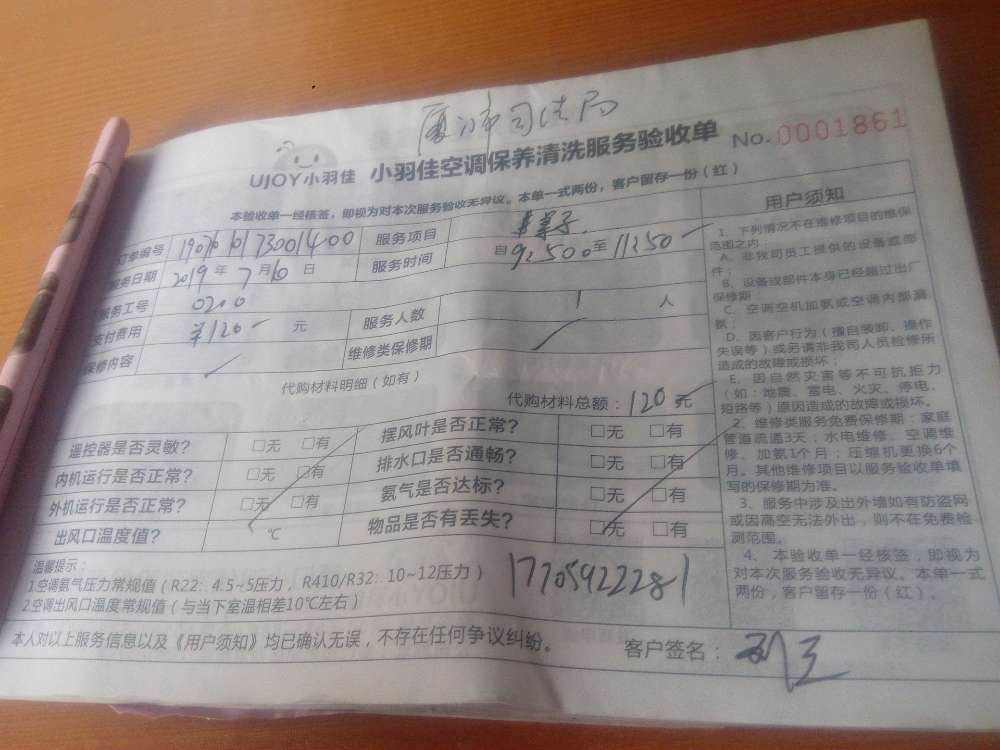 厦门市司法局
UJOY小羽佳 小羽佳空调保养清洗服务验收单 No. 0001861
本验收单一经核签，即视为对本次服务验收无异议。本单一式两份，客户留存一份（红）
单编号 服务项目
务日期 2019年7月10日 服务时间 自9:500至11:50
务工号 0210
支付费用 ¥120- 元 服务人数 1 人
保修内容 维修类保修期
代购材料明细（如有）
代购材料总额：120元
遥控器是否灵敏？ □无 □有 摆风叶是否正常？ □无 □有
内机运行是否正常？ □无 □有 排水口是否通畅？ □无 □有
外机运行是否正常？ □无 □有 氨气是否达标？ □无 □有
出风口温度值？ ℃ 物品是否有丢失？ □无 □有
温馨提示：
1.空调氨气压力常规值（R22：4.5~5压力，R410/R32：10~12压力）
2.空调出风口温度常规值（与当下室温相差10℃左右）
17705922281
本人对以上服务信息以及《用户须知》均已确认无误，不存在任何争议纠纷。
客户签名：
用户须知
1、下列情况不在维修项目的维保
范围之内：
A、非我司员工提供的设备或部
件；
B、设备或部件本身已经超过出厂
保修期
C、空调空机加氨或空调内部漏
氨；
D、因客户行为（擅自装卸、操作
失误等）或另请非我司人员检修所
造成的故障或损坏；
E、因自然灾害等不可抗拒力
（如：地震、雷电、火灾、停电、
短路等）原因造成的故障或损坏。
2、维修类服务免费保修期：家庭
管道疏通3天；水电维修、空调维
修、加氨1个月；压缩机更换6个
月。其他维修项目以服务验收单填
写的保修期为准。
3、服务中涉及出外墙如有防盗网
或因高空无法外出，则不在免费检
测范围。
4、本验收单一经核签，即视为
对本次服务验收无异议。本单一式
两份，客户留存一份（红）。